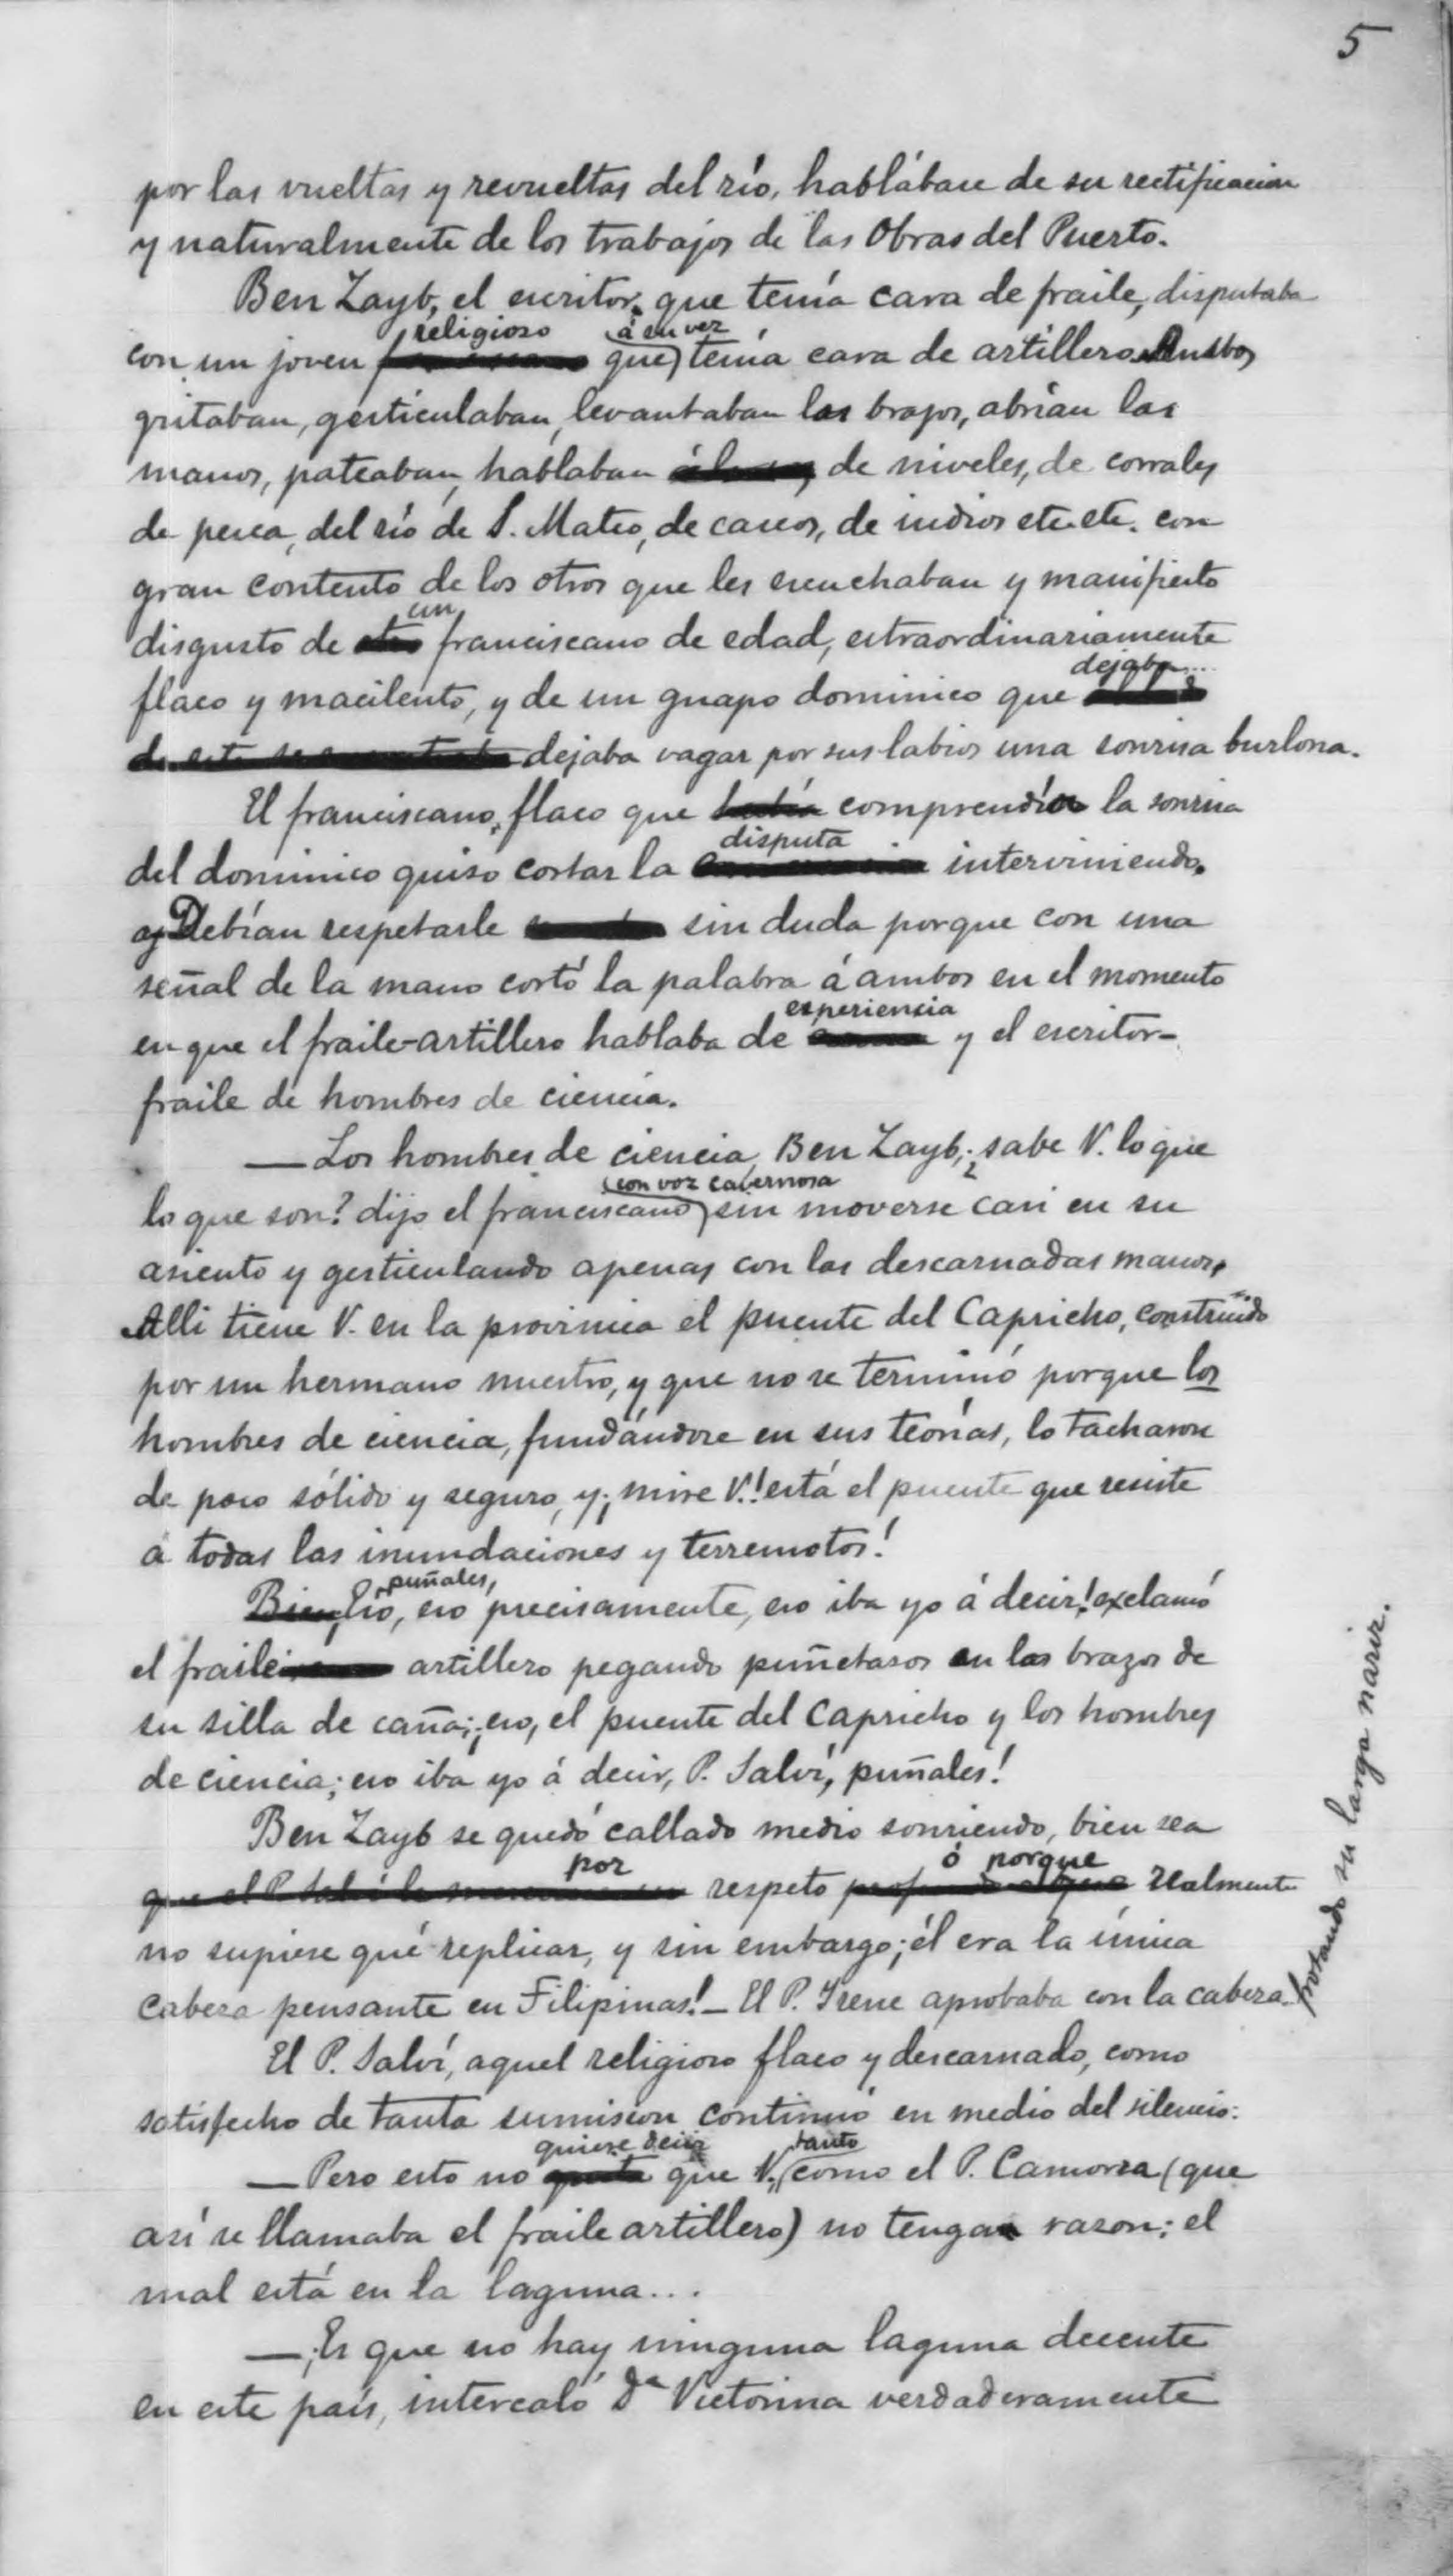 5
por las vueltas y revueltas del río, hablábase de su rectificacion
y naturalmente de los trabajos de las Obras del Puerto.
Ben Zayb, el escritor que tenía cara de fraile, disputaba
religioso á su vez
con un joven que tenía cara de artillero. Ambos
gritaban, gesticulaban, levantaban los brazos, abrían las
manos, pateaban, hablaban de niveles, de corrales
de pesca, del río de S. Mateo, de cascos, de indios etc. etc. con
gran contento de los otros que les escuchaban y manifiesto
un
disgusto de otro franciscano de edad, estraordinariamente
dejaba...
flaco y macilento, y de un guapo dominico que
dejaba vagar por sus labios una sonrisa burlona.
El franciscano flaco que había comprendía la sonrisa
disputa
del dominico quiso cortar la interviniendo.
Debían respetarle sin duda porque con una
señal de la mano cortó la palabra á ambos en el momento
esperiencia
en que el fraile-artillero hablaba de y el escritor-
fraile de hombres de ciencia.
—Los hombres de ciencia, Ben Zayb, ¿sabe V. lo que
con voz cabernosa
lo que son? dijo el franciscano sin moverse casi en su
asiento y gesticulando apenas con las descarnadas manos.
Allí tiene V. en la provincia el puente del Capricho, construido
por un hermano nuestro, y que no se terminó porque los
hombres de ciencia, fundándose en sus teorías, lo tacharon
de poco sólido y seguro, y ¡mire V.! está el puente que resiste
á todas las inundaciones y terremotos!
puñales,
Bien, Eso, eso precisamente, eso iba yo á decir! exclamó
el fraile artillero pegando puñetasos en los brazos de
su silla de caña; ¡eso, el puente del Capricho y los hombres
de ciencia; eso iba yo á decir, P. Salví, puñales!
Ben Zayb se quedó callado medio sonriendo, bien sea
por ó porque
respeto realmente
no supiese qué replicar, y sin embargo ¡él era la única
cabeza pensante en Filipinas!— El P. Irene aprobaba con la cabeza
frotando su larga nariz.
El P. Salví, aquel religioso flaco y descarnado, como
satisfecho de tanta sumision continuó en medio del silencio:
quiere decir tanto
—Pero esto no que V. como el P. Camorra (que
así se llamaba el fraile artillero) no tengan razon; el
mal está en la laguna...
—¡Es que no hay ninguna laguna decente
en este país, intercaló Dª Victorina verdaderamente